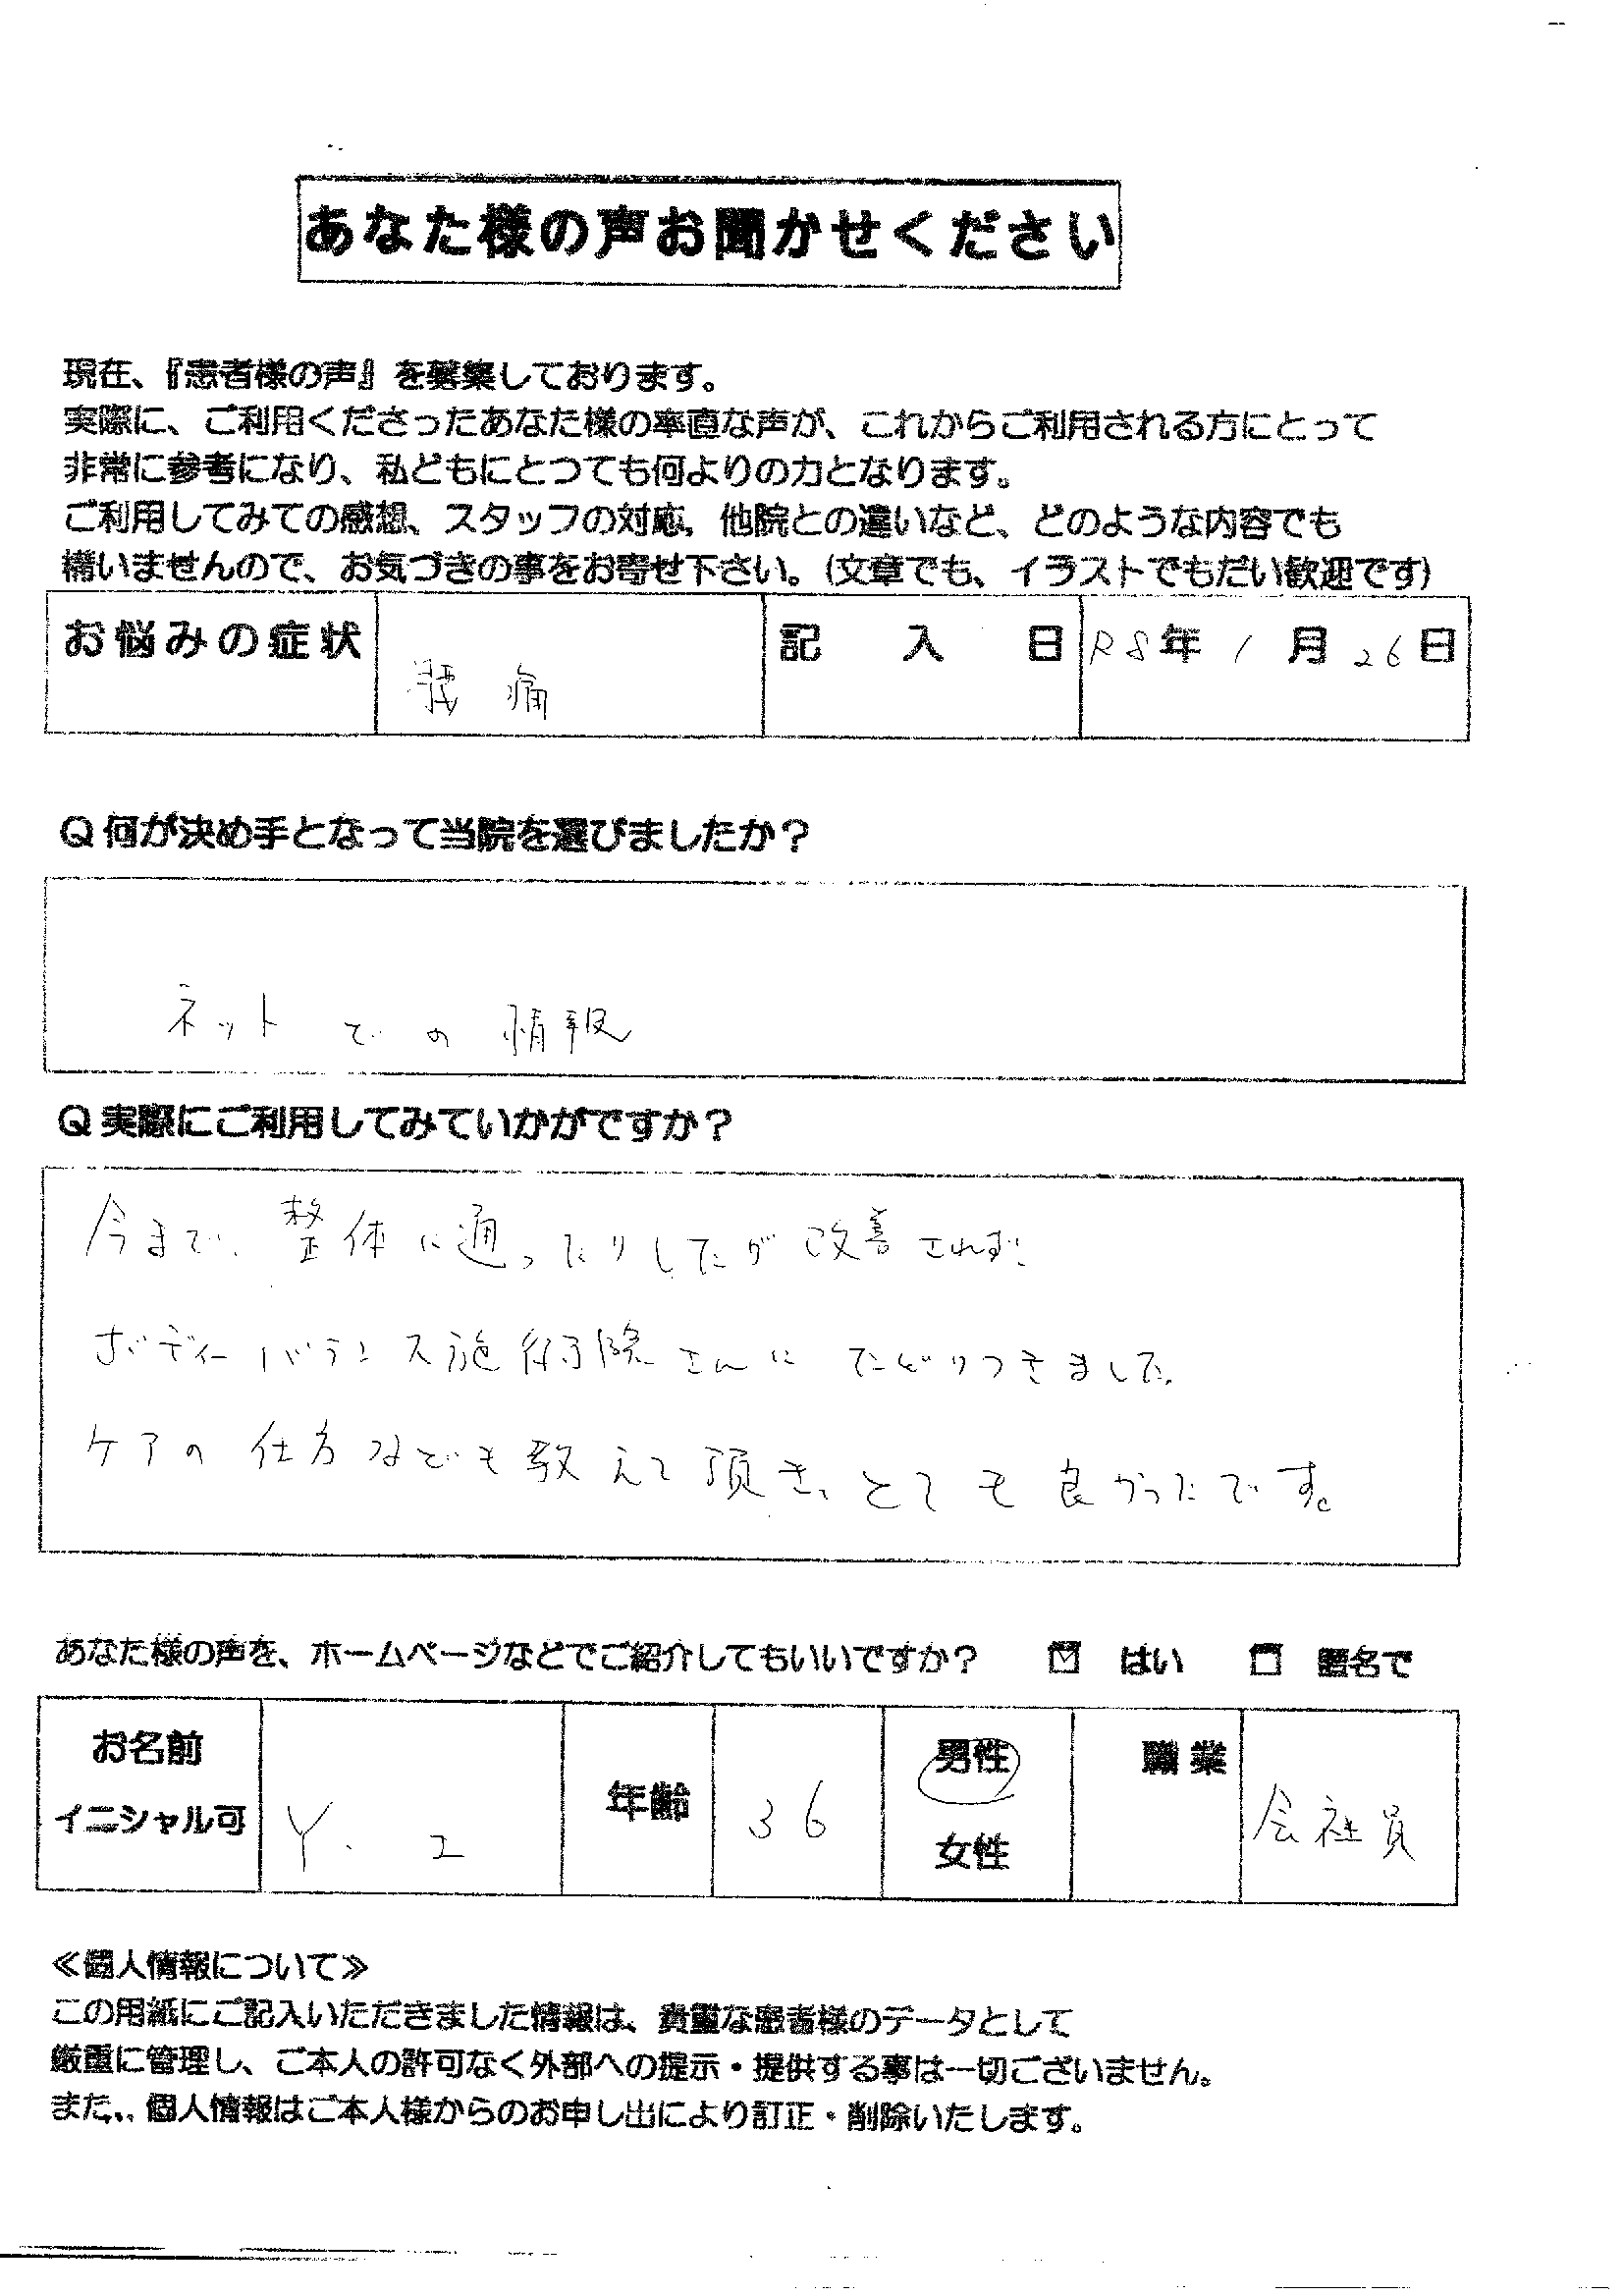 あなた様の声お聞かせください
現在、『患者様の声』を募集しております。
実際に、ご利用くださったあなた様の率直な声が、これからご利用される方にとって
非常に参考になり、私どもにとつても何よりの力となります。
ご利用してみての感想、スタッフの対応，他院との違いなど、どのような内容でも
構いませんので、お気づきの事をお寄せ下さい。(文章でも、イラストでもだい歓迎です)
お悩みの症状 腰痛 記入日 R8年1月26日
Q 何が決め手となって当院を選びましたか？
ネットでの情報
Q 実際にご利用してみていかがですか？
今まで、整体に通ったりしたが改善されず、
ボディーバランス施術院さんにたどりつきました。
ケアの仕方なども教えて頂き、とても良かったです。
あなた様の声を、ホームページなどでご紹介してもいいですか？ ☑ はい □ 匿名で
お名前 男性 職業
イニシャル可 Y. エ 年齢 36 女性 会社員
≪個人情報について≫
この用紙にご記入いただきました情報は、貴重な患者様のデータとして
厳重に管理し、ご本人の許可なく外部への提示・提供する事は一切ございません。
また、、個人情報はご本人様からのお申し出により訂正・削除いたします。